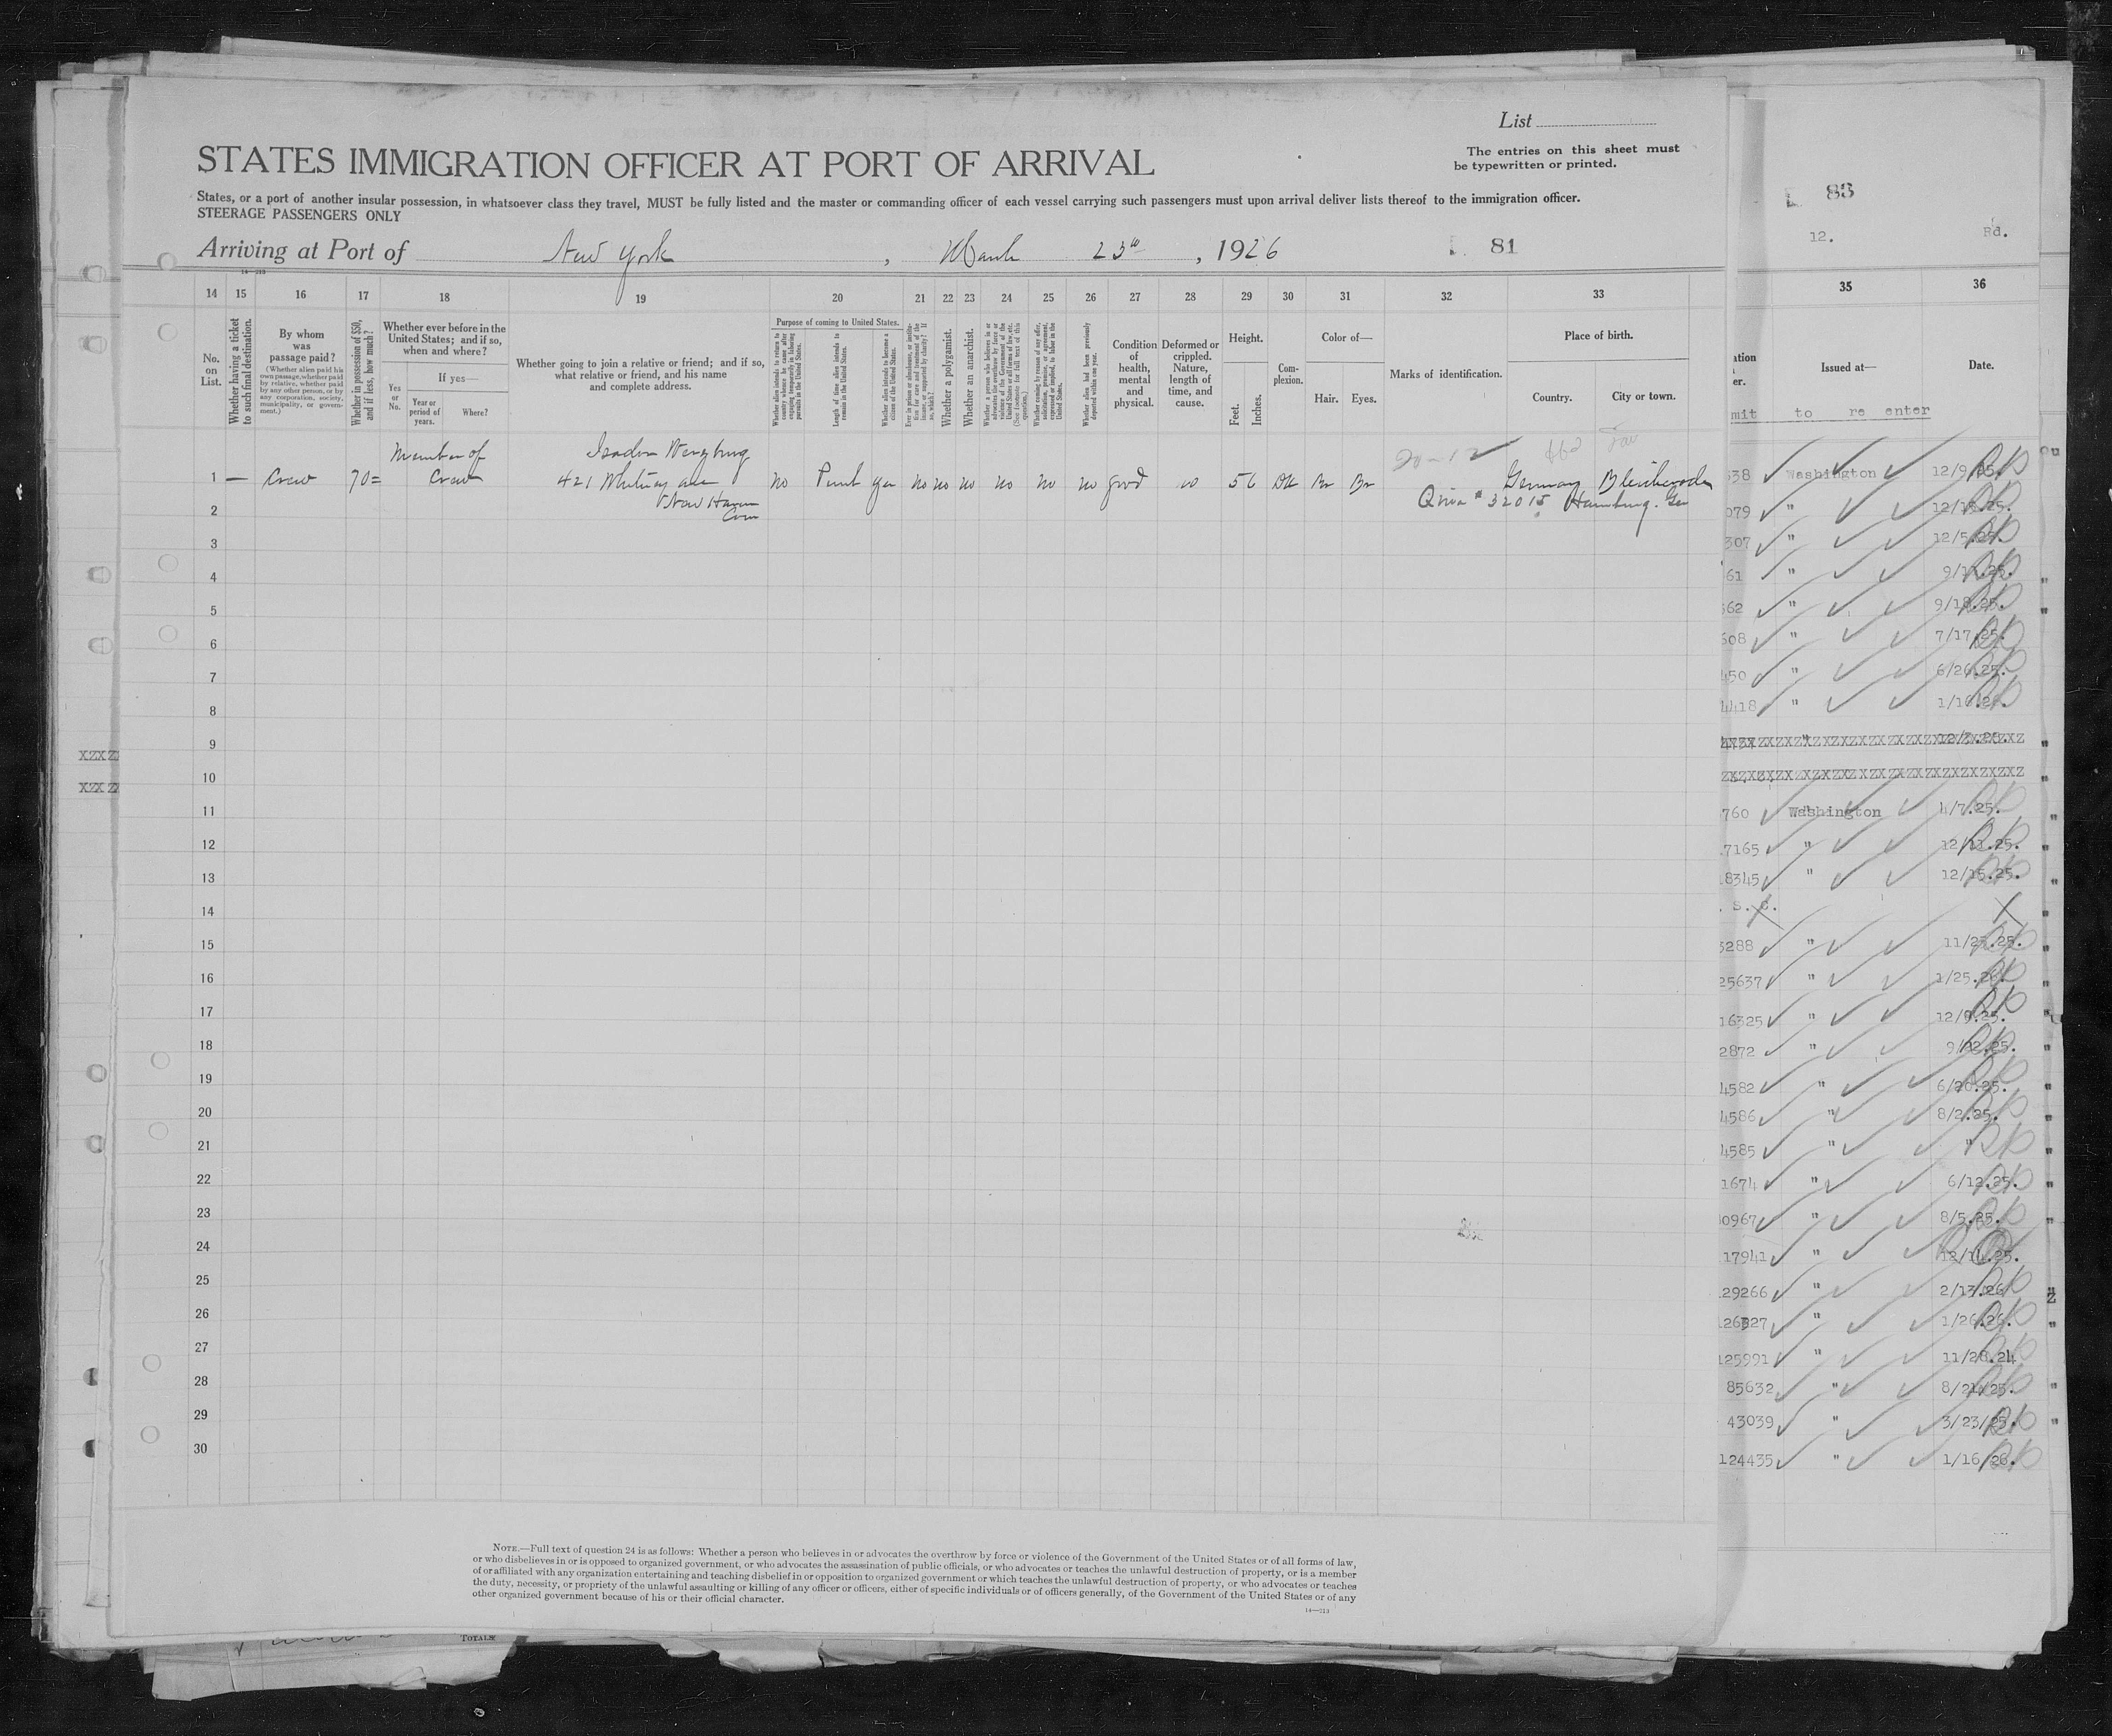 List
The entries on this sheet must
be typewritten or printed.
STATES IMMIGRATION OFFICER AT PORT OF ARRIVAL
States, or a port of another insular possession, in whatsoever class they travel, MUST be fully listed and the master or commanding officer of each vessel carrying such passengers must upon arrival deliver lists thereof to the immigration officer.
STEERAGE PASSENGERS ONLY
Arriving at Port of New York, March 23rd, 1926
81
14—213
14 15 16 17 18 19 20 21 22 23 24 25 26 27 28 29 30 31 32 33
No. on List.
Whether having a ticket to such final destination.
By whom was passage paid?
(Whether alien paid his own passage, whether paid by relative, whether paid by any other person, or by any corporation, society, municipality, or government.)
Whether in possession of $50, and if less, how much?
Whether ever before in the United States; and if so, when and where?
Yes or No.
If yes—
Year or period of years.
Where?
Whether going to join a relative or friend; and if so, what relative or friend, and his name and complete address.
Purpose of coming to United States.
Whether alien intends to return to country whence he came after engaging temporarily in laboring pursuits in the United States.
Length of time alien intends to remain in the United States.
Whether alien intends to become a citizen of the United States.
Whether a polygamist.
Whether an anarchist.
Whether alien had been previously deported within one year.
Condition of health, mental and physical.
Deformed or crippled. Nature, length of time, and cause.
Height.
Feet.
Inches.
Complexion.
Color of—
Hair.
Eyes.
Marks of identification.
Place of birth.
Country.
City or town.
Member of
Crew
1 — Crew 70=
421 Whitney ave
New Haven
Conn
no Pmt yes no no no no no no good no 5 6 Dk Br Br
Germany
# 32015 Hamburg. Ger
2
3
4
5
6
7
8
9
10
11
12
13
14
15
16
17
18
19
20
21
22
23
24
25
26
27
28
29
30
NOTE.—Full text of question 24 is as follows: Whether a person who believes in or advocates the overthrow by force or violence of the Government of the United States or of all forms of law,
or who disbelieves in or is opposed to organized government, or who advocates the assassination of public officials, or who advocates or teaches the unlawful destruction of property, or is a member
of or affiliated with any organization entertaining and teaching disbelief in or opposition to organized government or which teaches the unlawful destruction of property, or who advocates or teaches
the duty, necessity, or propriety of the unlawful assaulting or killing of any officer or officers, either of specific individuals or of officers generally, of the Government of the United States or of any
other organized government because of his or their official character.
14—213
TOTALS
83
12.
35 36
Issued at—
Date.
mit to re enter
338 Washington 12/9.25.
079 "
307 " 12/5.25.
61 "
362 " 9/18.25.
608 " 7/17.25.
450 " 6/26.25.
4418 "
760 Washington 4/7.25.
7165 " 12/11.25.
8345 " 12/15.25.
3288 " 11/23.25.
25637 "
16325 " 12/9.25.
2872 " 9/22.25.
4582 " 6/20.25.
4586 " 8/2.25.
4585 " "
1674 " 6/12.25.
0967 " 8/5.25.
17941 " 12/14.25.
29266 " 2/13.26
" 1/26.26.
125991 " 11/28.24
85632 "
43039 " 3/23/25.
124435 " 1/16/26.